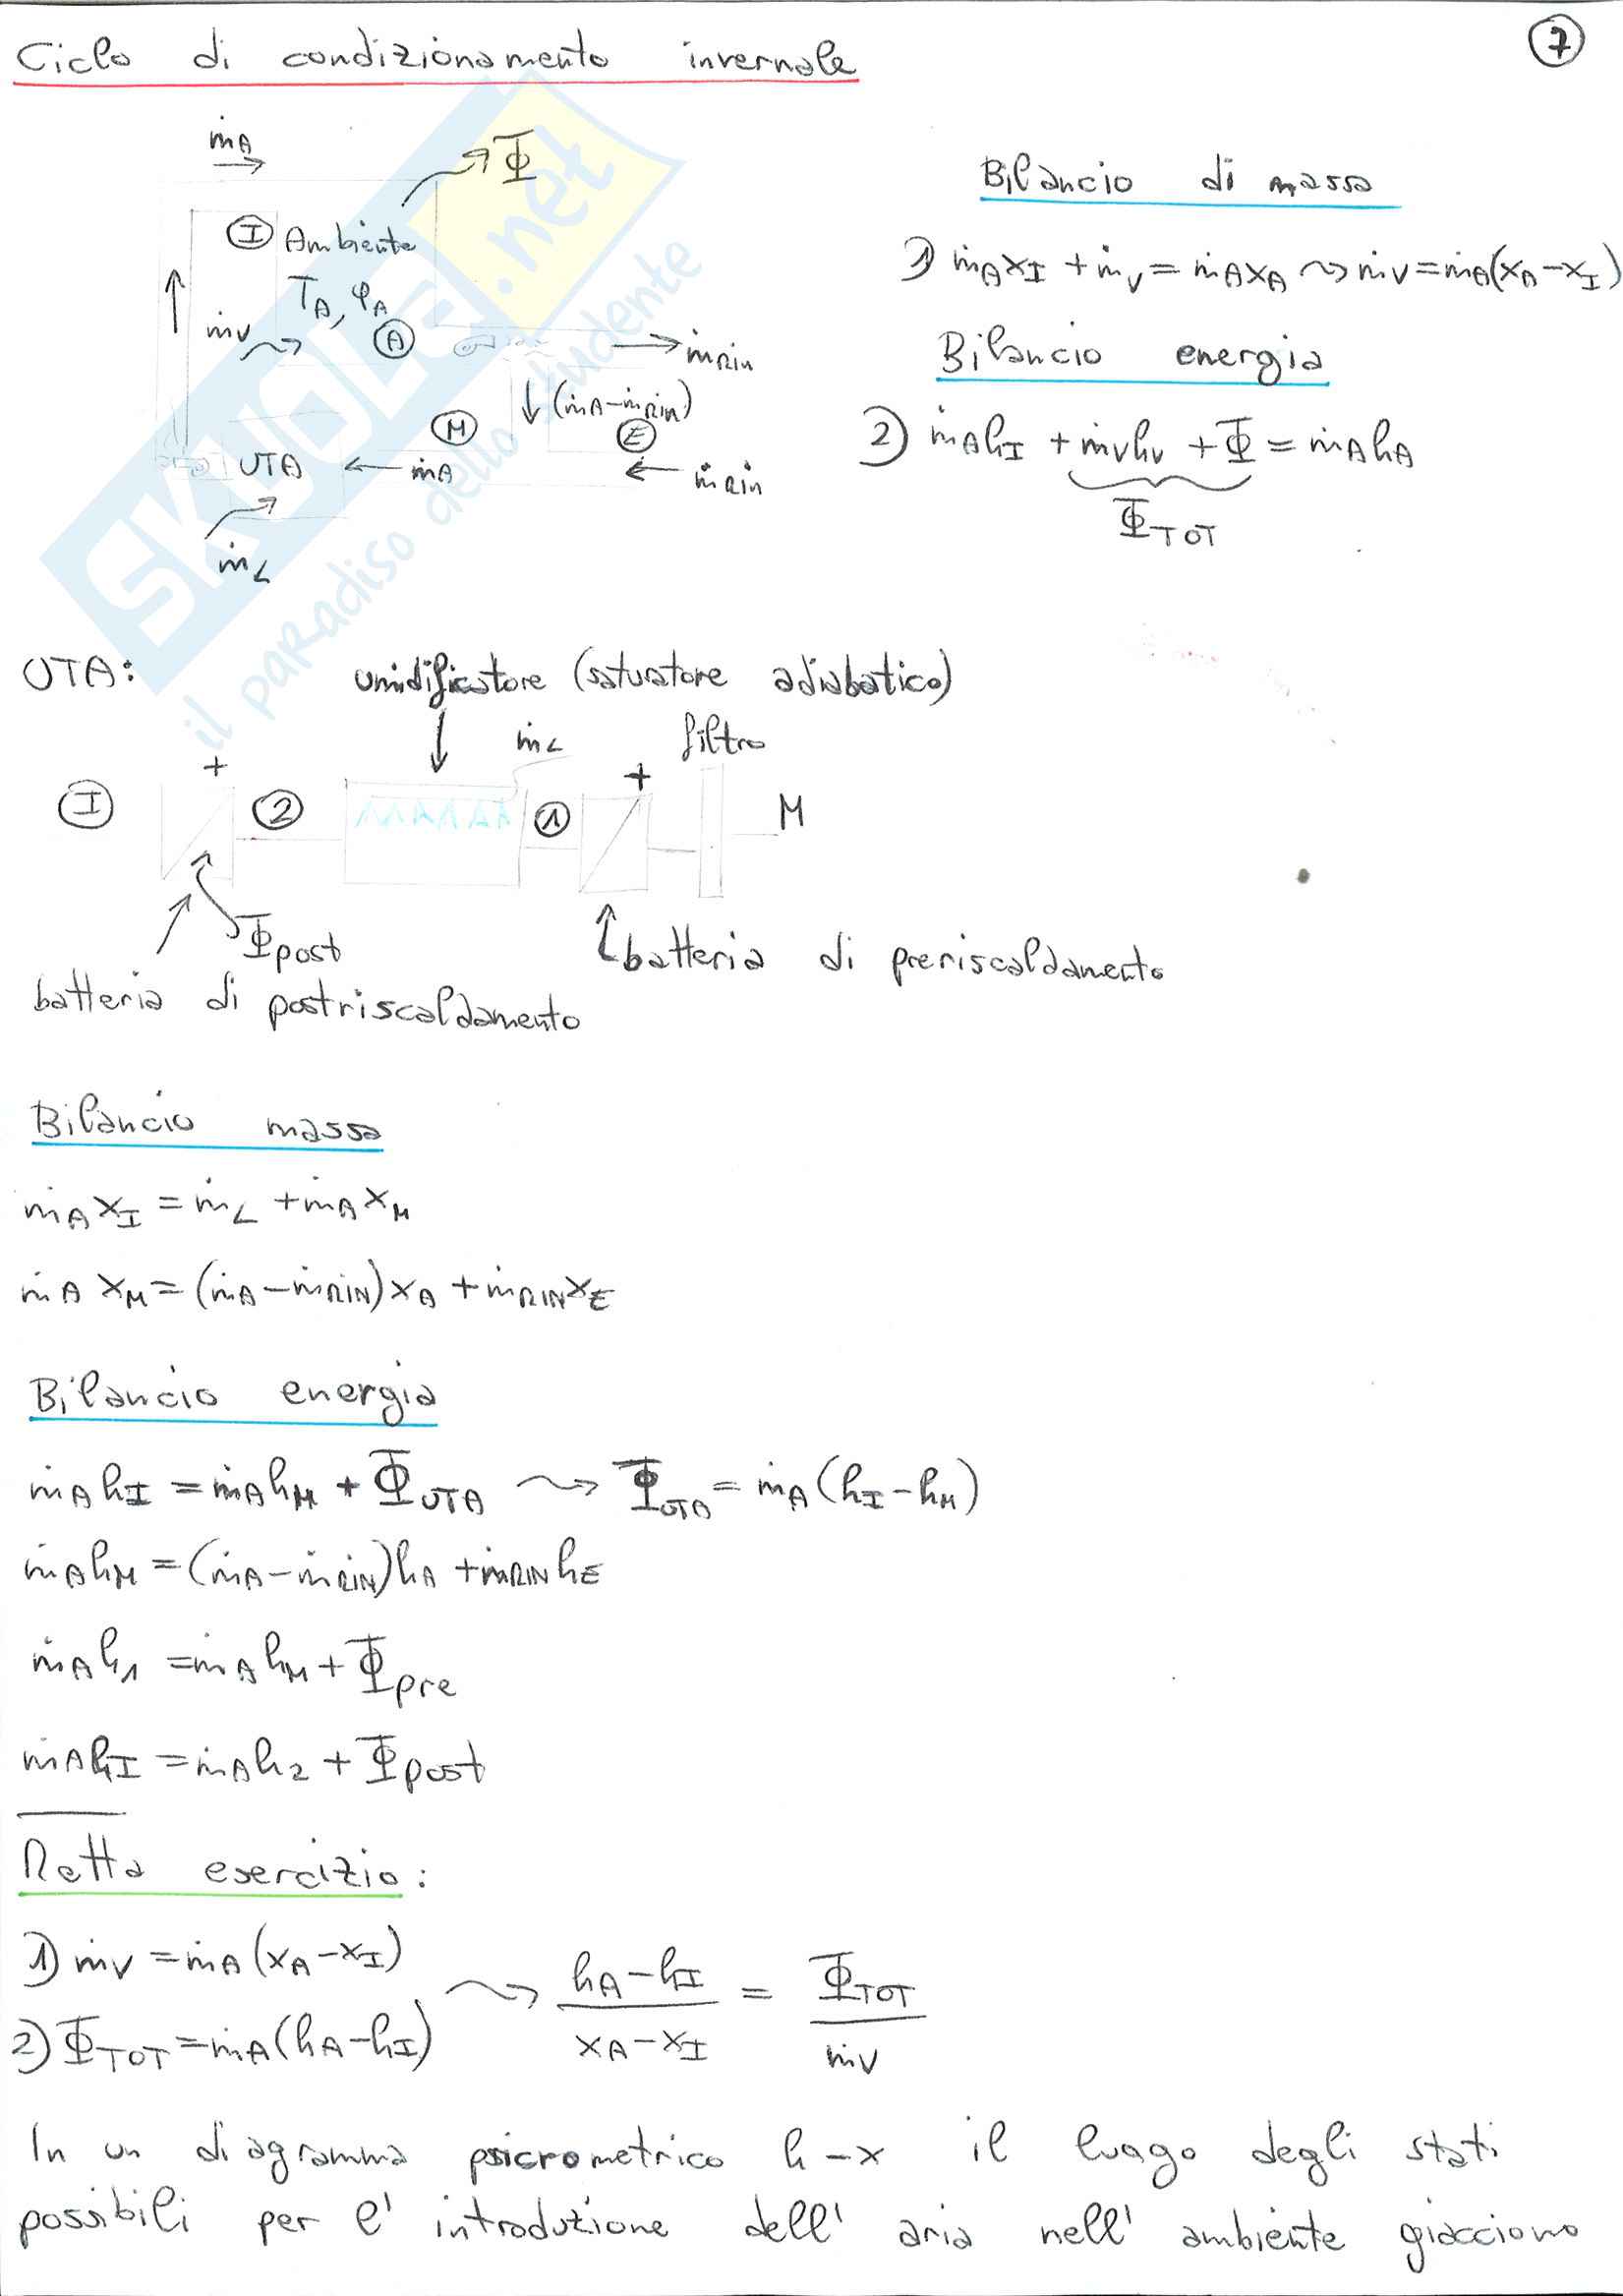 Ciclo di condizionamento invernale
7
ṁA
Φ
I Ambiente
TA, φA
ṁv
A
ṁRin
(ṁA-ṁRin)
M
E
UTA
ṁA
ṁRin
ṁL
Bilancio di massa
1) ṁAxI + ṁv = ṁAxA ⇝ ṁv = ṁA(xA-xI)
Bilancio energia
2) ṁAhI + ṁvhv + Φ = ṁAhA
ΦTOT
SKUOLA.net
il paradiso dello studente
UTA:
umidificatore (saturatore adiabatico)
ṁL
filtro
+
+
I
2
1
M
Φpost
batteria di preriscaldamento
batteria di postriscaldamento
Bilancio massa
ṁAxI = ṁL + ṁAxM
ṁAxM = (ṁA-ṁRIN)xA + ṁRINxE
Bilancio energia
ṁAhI = ṁAhM + ΦUTA ⇝ ΦUTA = ṁA(hI-hM)
ṁAhM = (ṁA-ṁRIN)hA + ṁRINhE
ṁAh1 = ṁAhM + Φpre
ṁAhI = ṁAh2 + Φpost
Retta esercizio:
1) ṁv = ṁA(xA-xI)
2) ΦTOT = ṁA(hA-hI)
⇝ hA-hI / xA-xI = ΦTOT / ṁv
In un diagramma psicrometrico h-x il luogo degli stati
possibili per l' introduzione dell' aria nell' ambiente giacciono